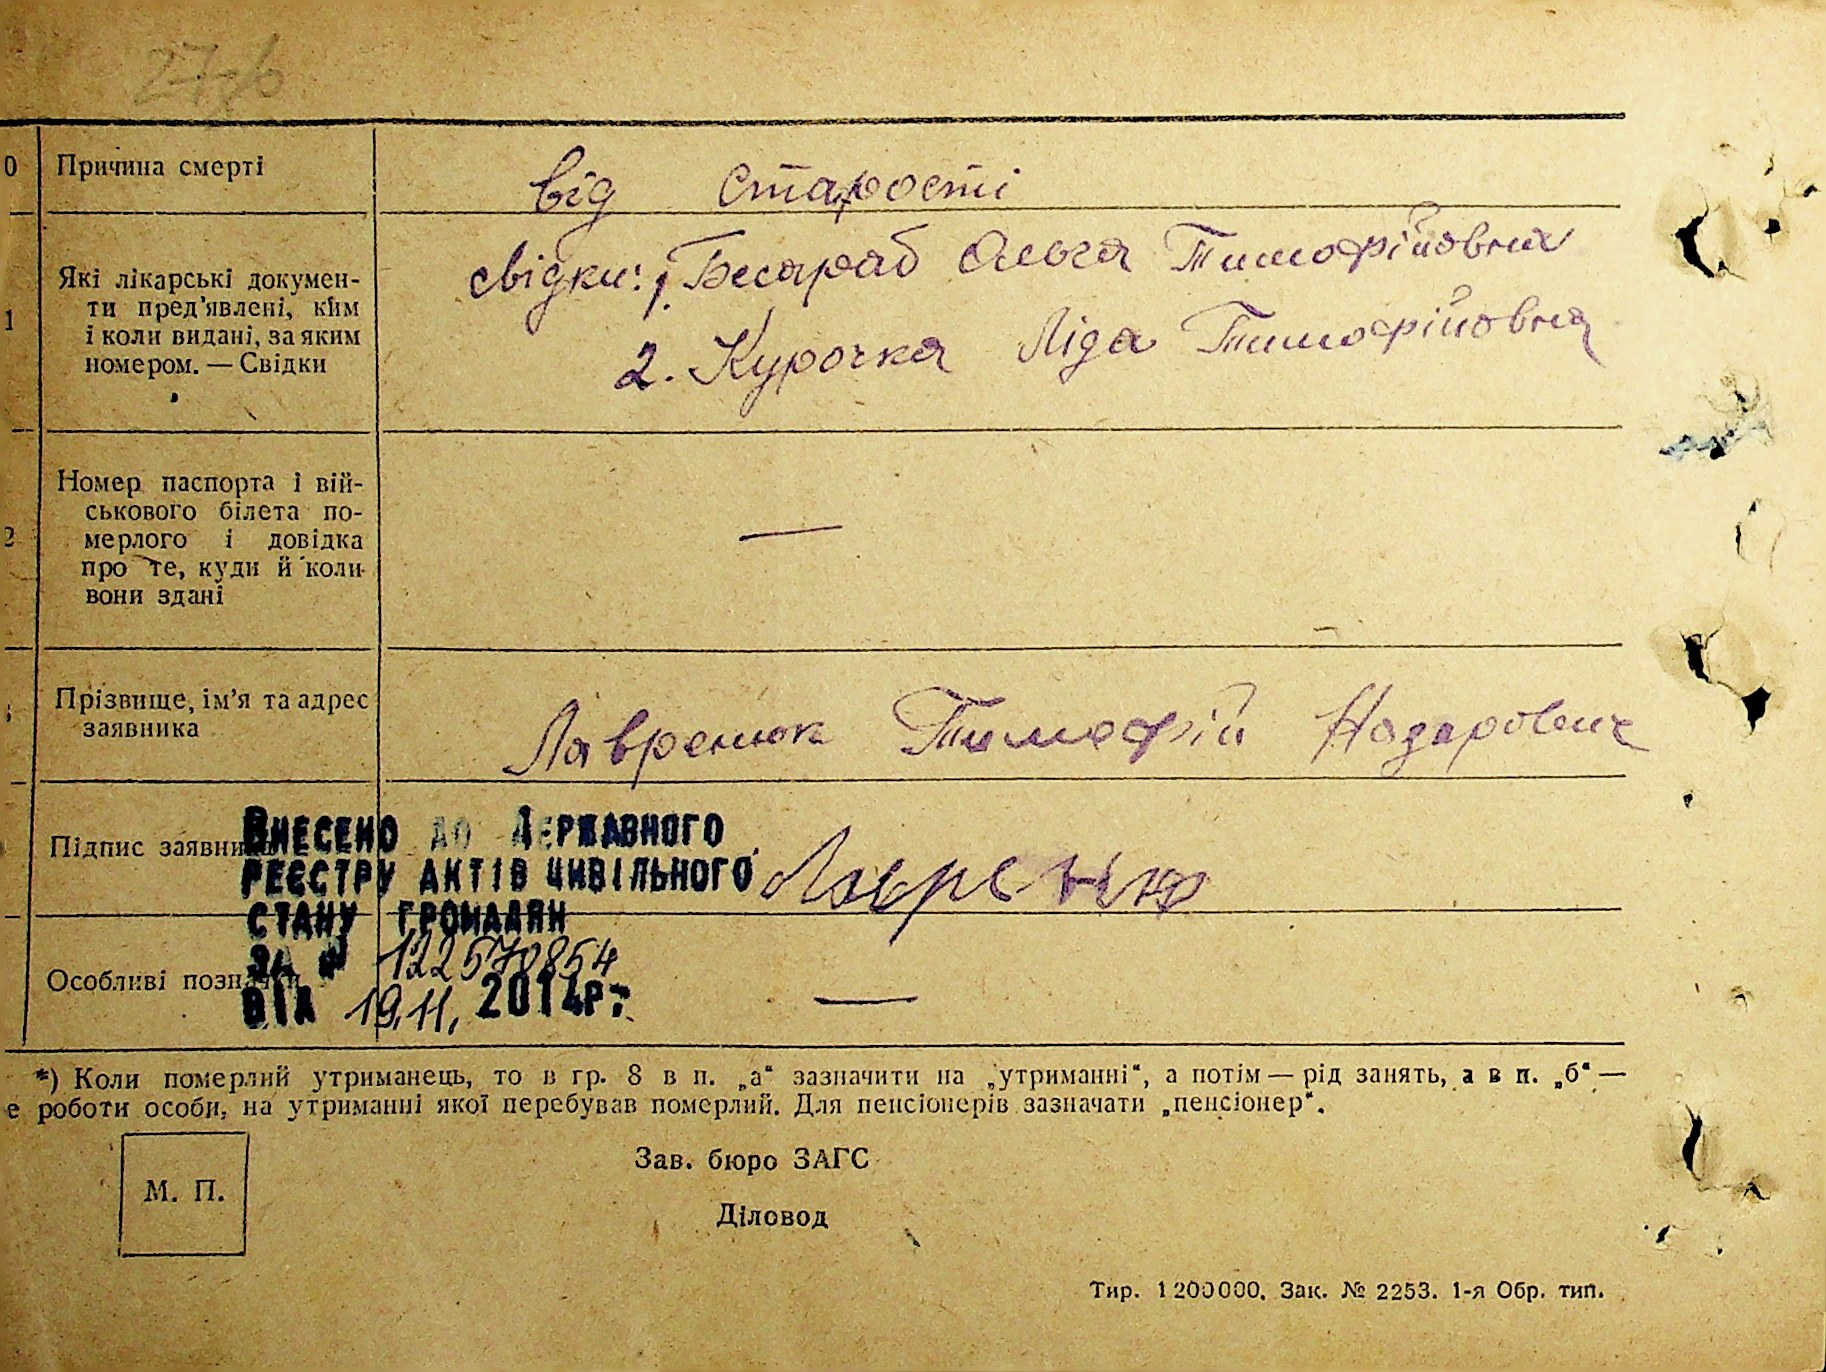 27зб
0 Причина смерті від старості
свідки: 1. Бесараб Ольга Тимофіївна
Які лікарські докумен-
ти пред'явлені, ким
1
і коли видані, за яким
номером. — Свідки
2. Курочка Ліда Тимофіївна
Номер паспорта і вій-
ськового білета по-
2 мерлого і довідка
про те, куди й коли
вони здані
—
Прізвище, ім'я та адрес
заявника
Лавренюк Тимофій Назарович
Підпис заявника
Внесено до Державного
реєстру актів цивільного
стану громадян
за № 122570854
від 19.11. 2014р.
Особливі позначки —
*) Коли померлий утриманець, то в гр. 8 в п. „а“ зазначити на „утриманні“, а потім — рід занять, а в п. „б“ —
е роботи особи, на утриманні якої перебував померлий. Для пенсіонерів зазначати „пенсіонер“.
Зав. бюро ЗАГС
М. П.
Діловод
Тир. 1200000. Зак. № 2253. 1-я Обр. тип.